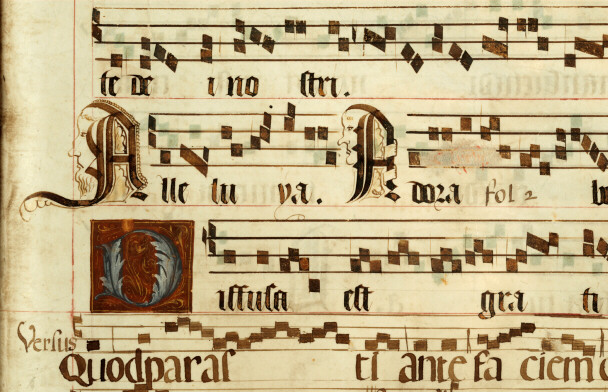 te de i no stri.
A lle lu ya. A dora fol 2
D iffusa est gra ti
Versus
Quodparas ti ante fa ciem